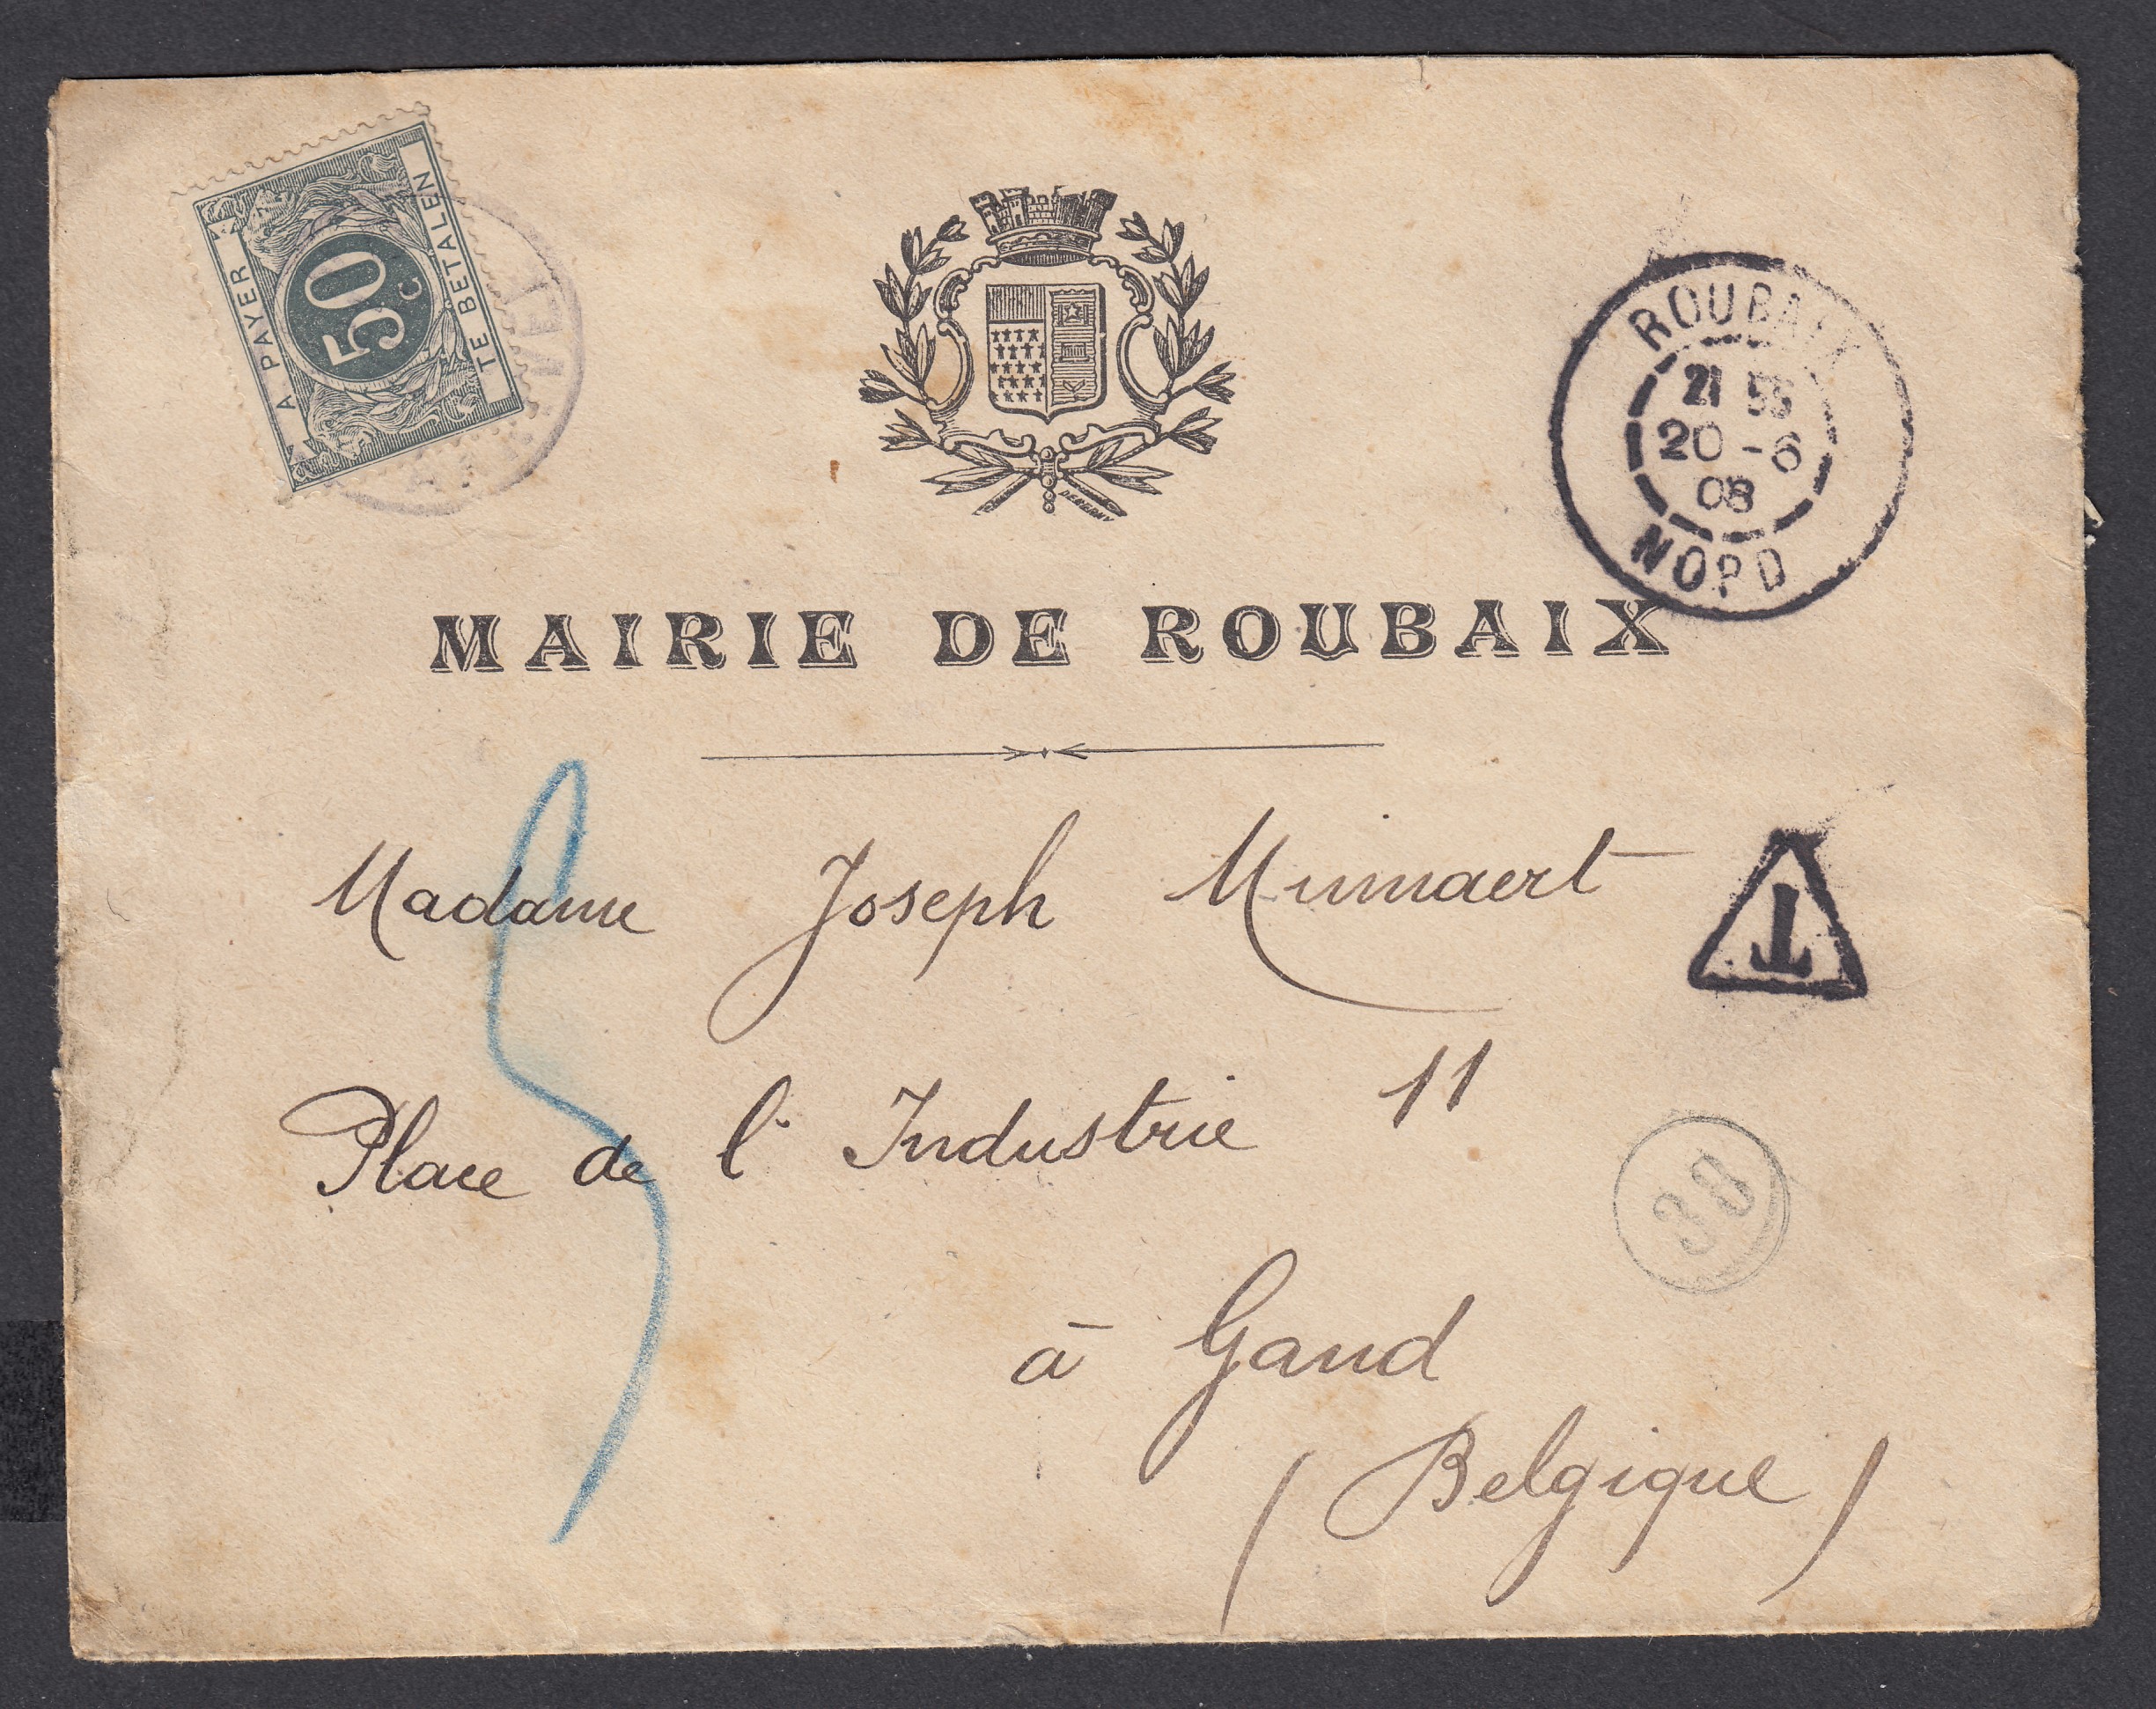 A PAYER
50 c
TE BETALEN
ROUBAIX
21 55
20 - 6
08
NORD
MAIRIE DE ROUBAIX
Madame Joseph
T
Place de l' Industrie 11
30
à Gand
(Belgique)